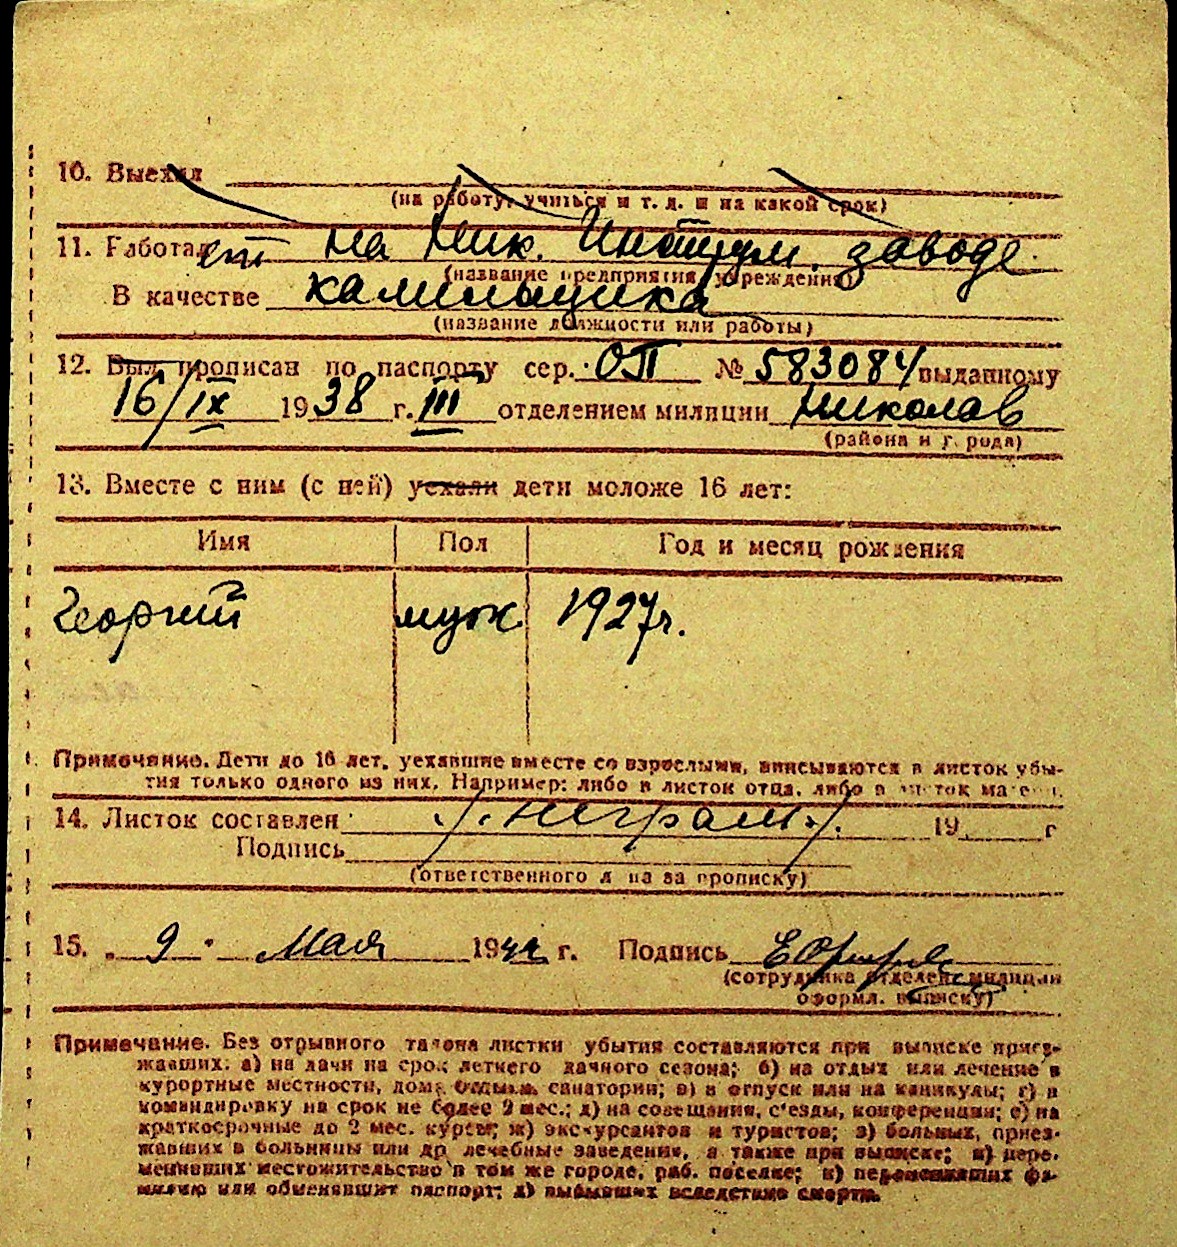 10. Выехал
(на работу, учиться и т. д. и на какой срок)
11. Работает на Ник. Инструм. заводе
(название предприятия, учреждения)
В качестве камильщика
(название должности или работы)
12. Был прописан по паспорту сер. ОП № 583084 выданному
16/IX 1938 г. III отделением милиции Николаев
(района и города)
13. Вместе с ним (с ней) уехали дети моложе 16 лет:
Имя Пол Год и месяц рождения
Георгий муж 1927г.
Примечание. Дети до 16 лет, уехавшие вместе со взрослыми, вписываются в листок убы-
тия только одного из них. Например: либо в листок отца, либо в листок матери.
14. Листок составлен /.неграм./. 19 г
Подпись
(ответственного лица за прописку)
15. „ 9 " Мая 1941 г. Подпись
(сотрудника отделен. милиции
оформл. выписку)
Примечание. Без отрывного талона листки убытия составляются при выписке приез-
жавших: а) на дачи на срок летнего дачного сезона; б) на отдых или лечение в
курортные местности, дома отдыха, санатории; в) в отпуск или на каникулы; г) в
командировку на срок не более 2 мес.; д) на совещания, с'езды, конференции; е) на
краткосрочные до 2 мес. курсы; ж) экскурсантов и туристов; з) больных, приез-
жавших в больницы или др. лечебные заведения, а также при выписке; и) пере-
менивших местожительство в том же городе, раб. поселке; к) переменивших фа-
милию или обменявших паспорт; л) выбывших вследствие смерти.